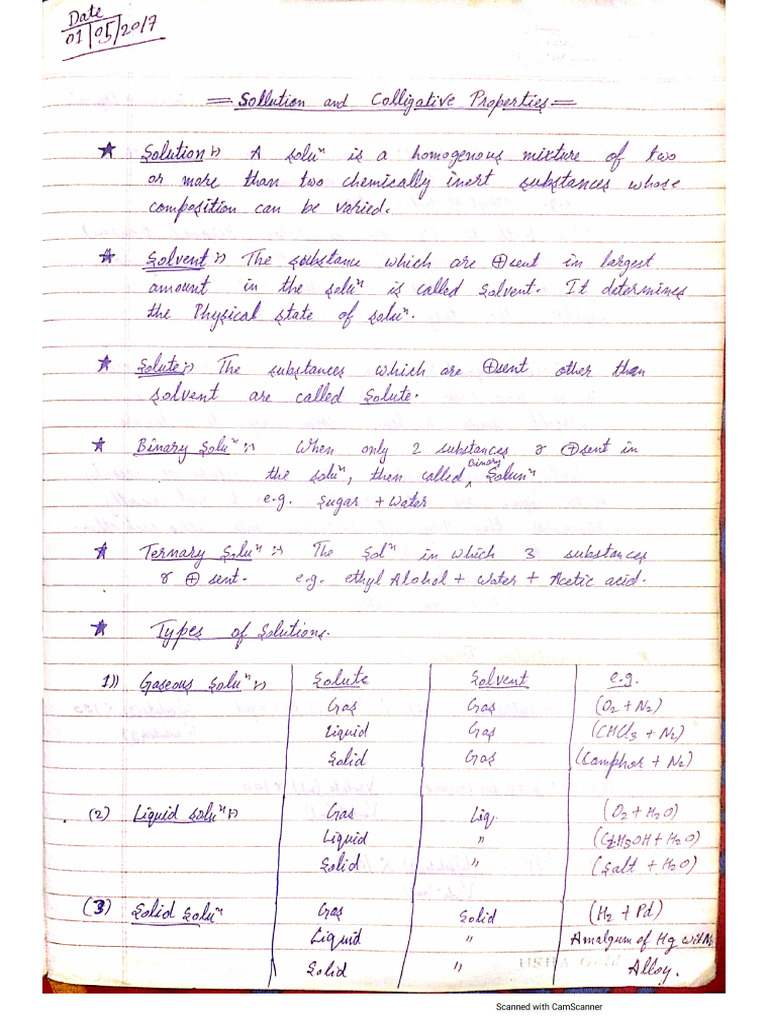 Date
01/05/2017
= Sollution and Colligative Properties =
★ Solution :-) A soluⁿ is a homogenous mixture of two
or more than two chemically inert substances whose
composition can be varied.
★ Solvent :- The substance which are ⊕sent in largest
amount in the soluⁿ is called Solvent. It determines
the Physical state of soluⁿ.
★ Solute :- The substances which are ⊕sent other than
solvent are called Solute.
★ Binary Soluⁿ :- When only 2 substances r ⊕sent in
the soluⁿ, then called Binary Solunⁿ
e.g. sugar + water
★ Ternary Soluⁿ :- The Solⁿ in which 3 substances
r ⊕sent. e.g. ethyl Alohol + water + Acetic acid.
★ Types of Solutions.
1)) Gaseous Soluⁿ :-) Solute Solvent e.g.
Gas Gas (O2 + N2)
Liquid Gas (CHCl3 + N2)
Solid Gas (Camphor + N2)
(2) Liquid Soluⁿ :-) Gas Liq. (O2 + H2O)
Liquid " (C2H5OH + H2O)
Solid " (Salt + H2O)
(3) Solid Soluⁿ Gas Solid (H2 + Pd)
Liquid " Amalgum of Hg with
Solid " Alloy.
Scanned with CamScanner